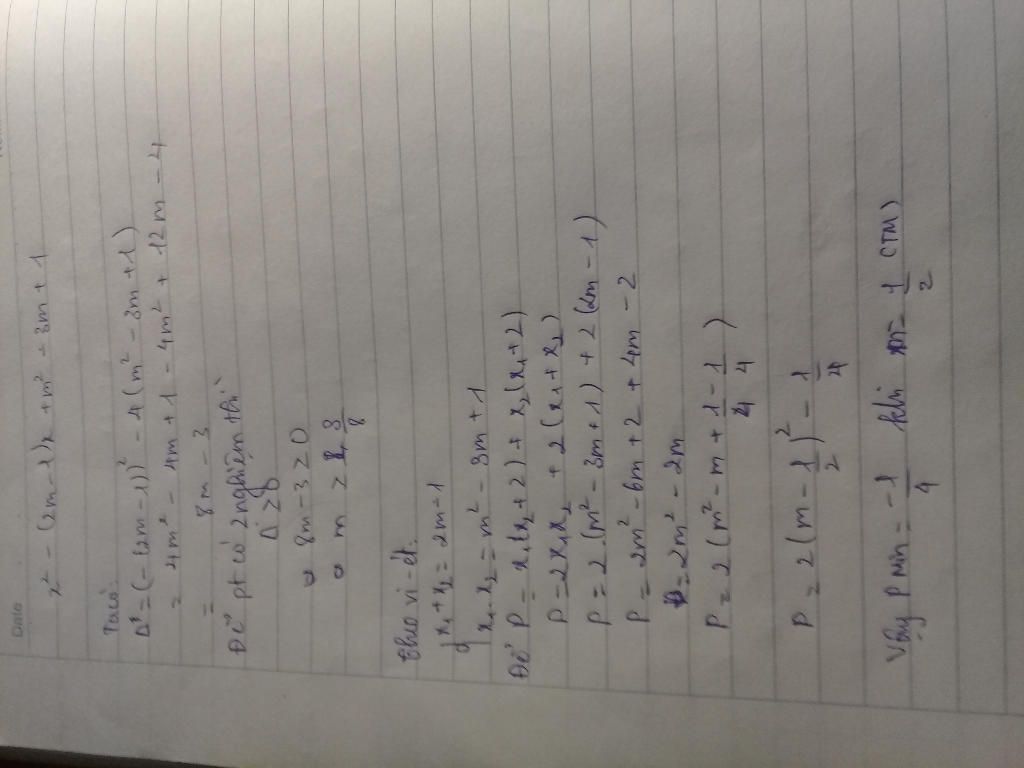 Date
x² - (2m-1)x + m² - 3m + 1
Ta có:
Δ = (-(2m-1))² - 4(m² - 3m + 1)
= 4m² - 4m + 1 - 4m² + 12m - 4
= 8m - 3
Để pt có 2 nghiệm thì
Δ ≥ 0
8m - 3 ≥ 0
m ≥ 3/8
theo vi-ét
{ x₁ + x₂ = 2m - 1
x₁ x₂ = m² - 3m + 1
Để P = x₁(x₂ + 2) + x₂(x₁ + 2)
P = 2x₁x₂ + 2(x₁ + x₂)
P = 2(m² - 3m + 1) + 2(2m - 1)
P = 2m² - 6m + 2 + 4m - 2
P = 2m² - 2m
P = 2(m² - m + 1/4 - 1/4)
P = 2(m - 1/2)² - 1/4
Vậy P min = -1/4 khi m = 1/2 (TM)